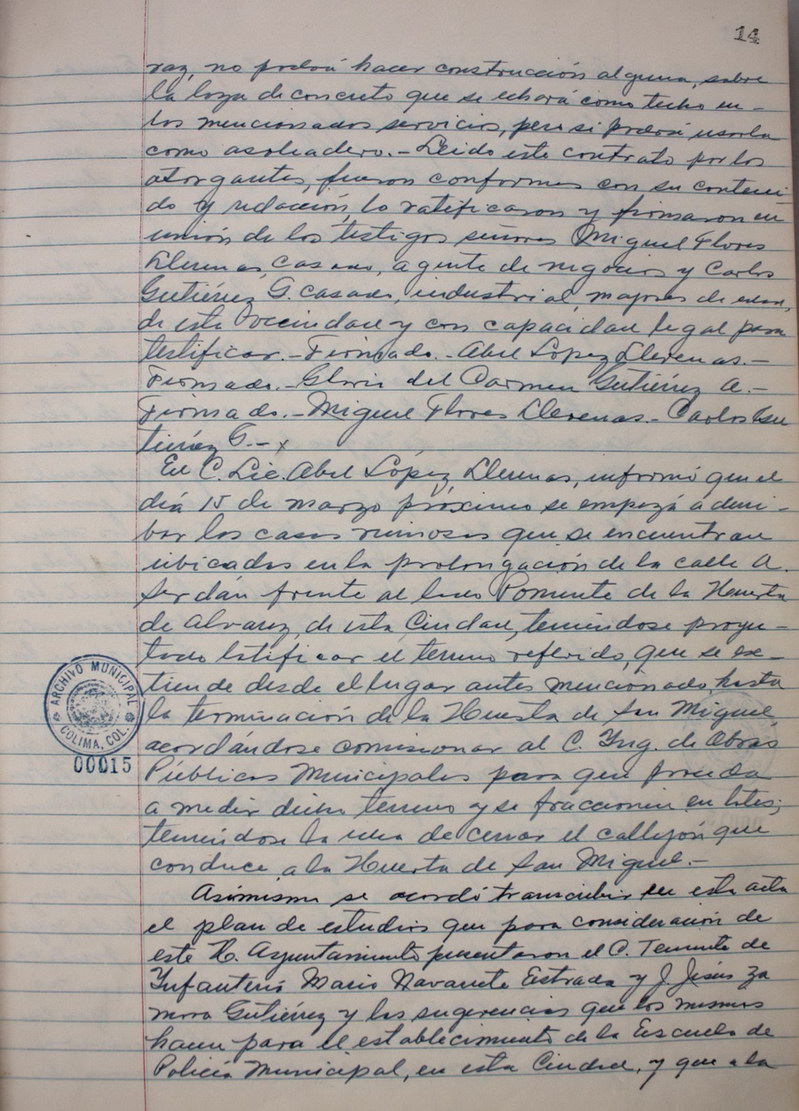 14
raz, no podrá hacer construcción alguna, sobre
la loza de concreto que se echará como techo en
los mencionados servicios, pero si podrá usarla
como asoleadero.- Leido este contrato por los
otorgantes, fueron conformes con su conteni-
do y redacción, lo ratificaron y firmaron en
unión de los testigos señores Miguel Flores
Llerenas, casado, agente de negocios y Carlos
Gutiérrez G. casado, industrial, mayores de edad,
de esta vecindad y con capacidad legal para
testificar.- Firmado.- Abel López Llerenas.-
Firmado.- Gloria del Carmen Gutiérrez A.-
Firmado.- Miguel Flores Llerenas.- Carlos Gu
tiérrez G.-x
El C. Lic. Abel López Llerenas, informó que el
día 15 de marzo próximo se empezá a derri-
bar las casas ruinosas que se encuentran
ubicadas en la prolongación de la calle A.
Serdán frente al lado Poniente de la Huerta
de Alvarez, de esta Ciudad, teniéndose proyec-
tado lotificar el terreno referido, que se ex-
tiende desde el lugar antes mencionado, hasta
la terminación de la Huerta de San Miguel,
acordándose comisionar al C. Ing. de Obras
Públicas Municipales para que proceda
a medir dicho terreno y se fraccionen en lotes;
teniéndose la idea de cerrar el callejón que
conduce a la Huerta de San Miguel.-
Asimismo se acordó transcribir en esta acta
el plan de estudios que para consideración de
este H. Ayuntamiento presentaron el C. Teniente de
Infantería Mario Navarrete Estrada y J. Jesús Za
mora Gutiérrez y las sugerencias que los mismos
hacen para el establecimiento de la Escuela de
Policía Municipal, en esta Ciudad, y que a la
ARCHIVO MUNICIPAL
COLIMA, COL.
00015